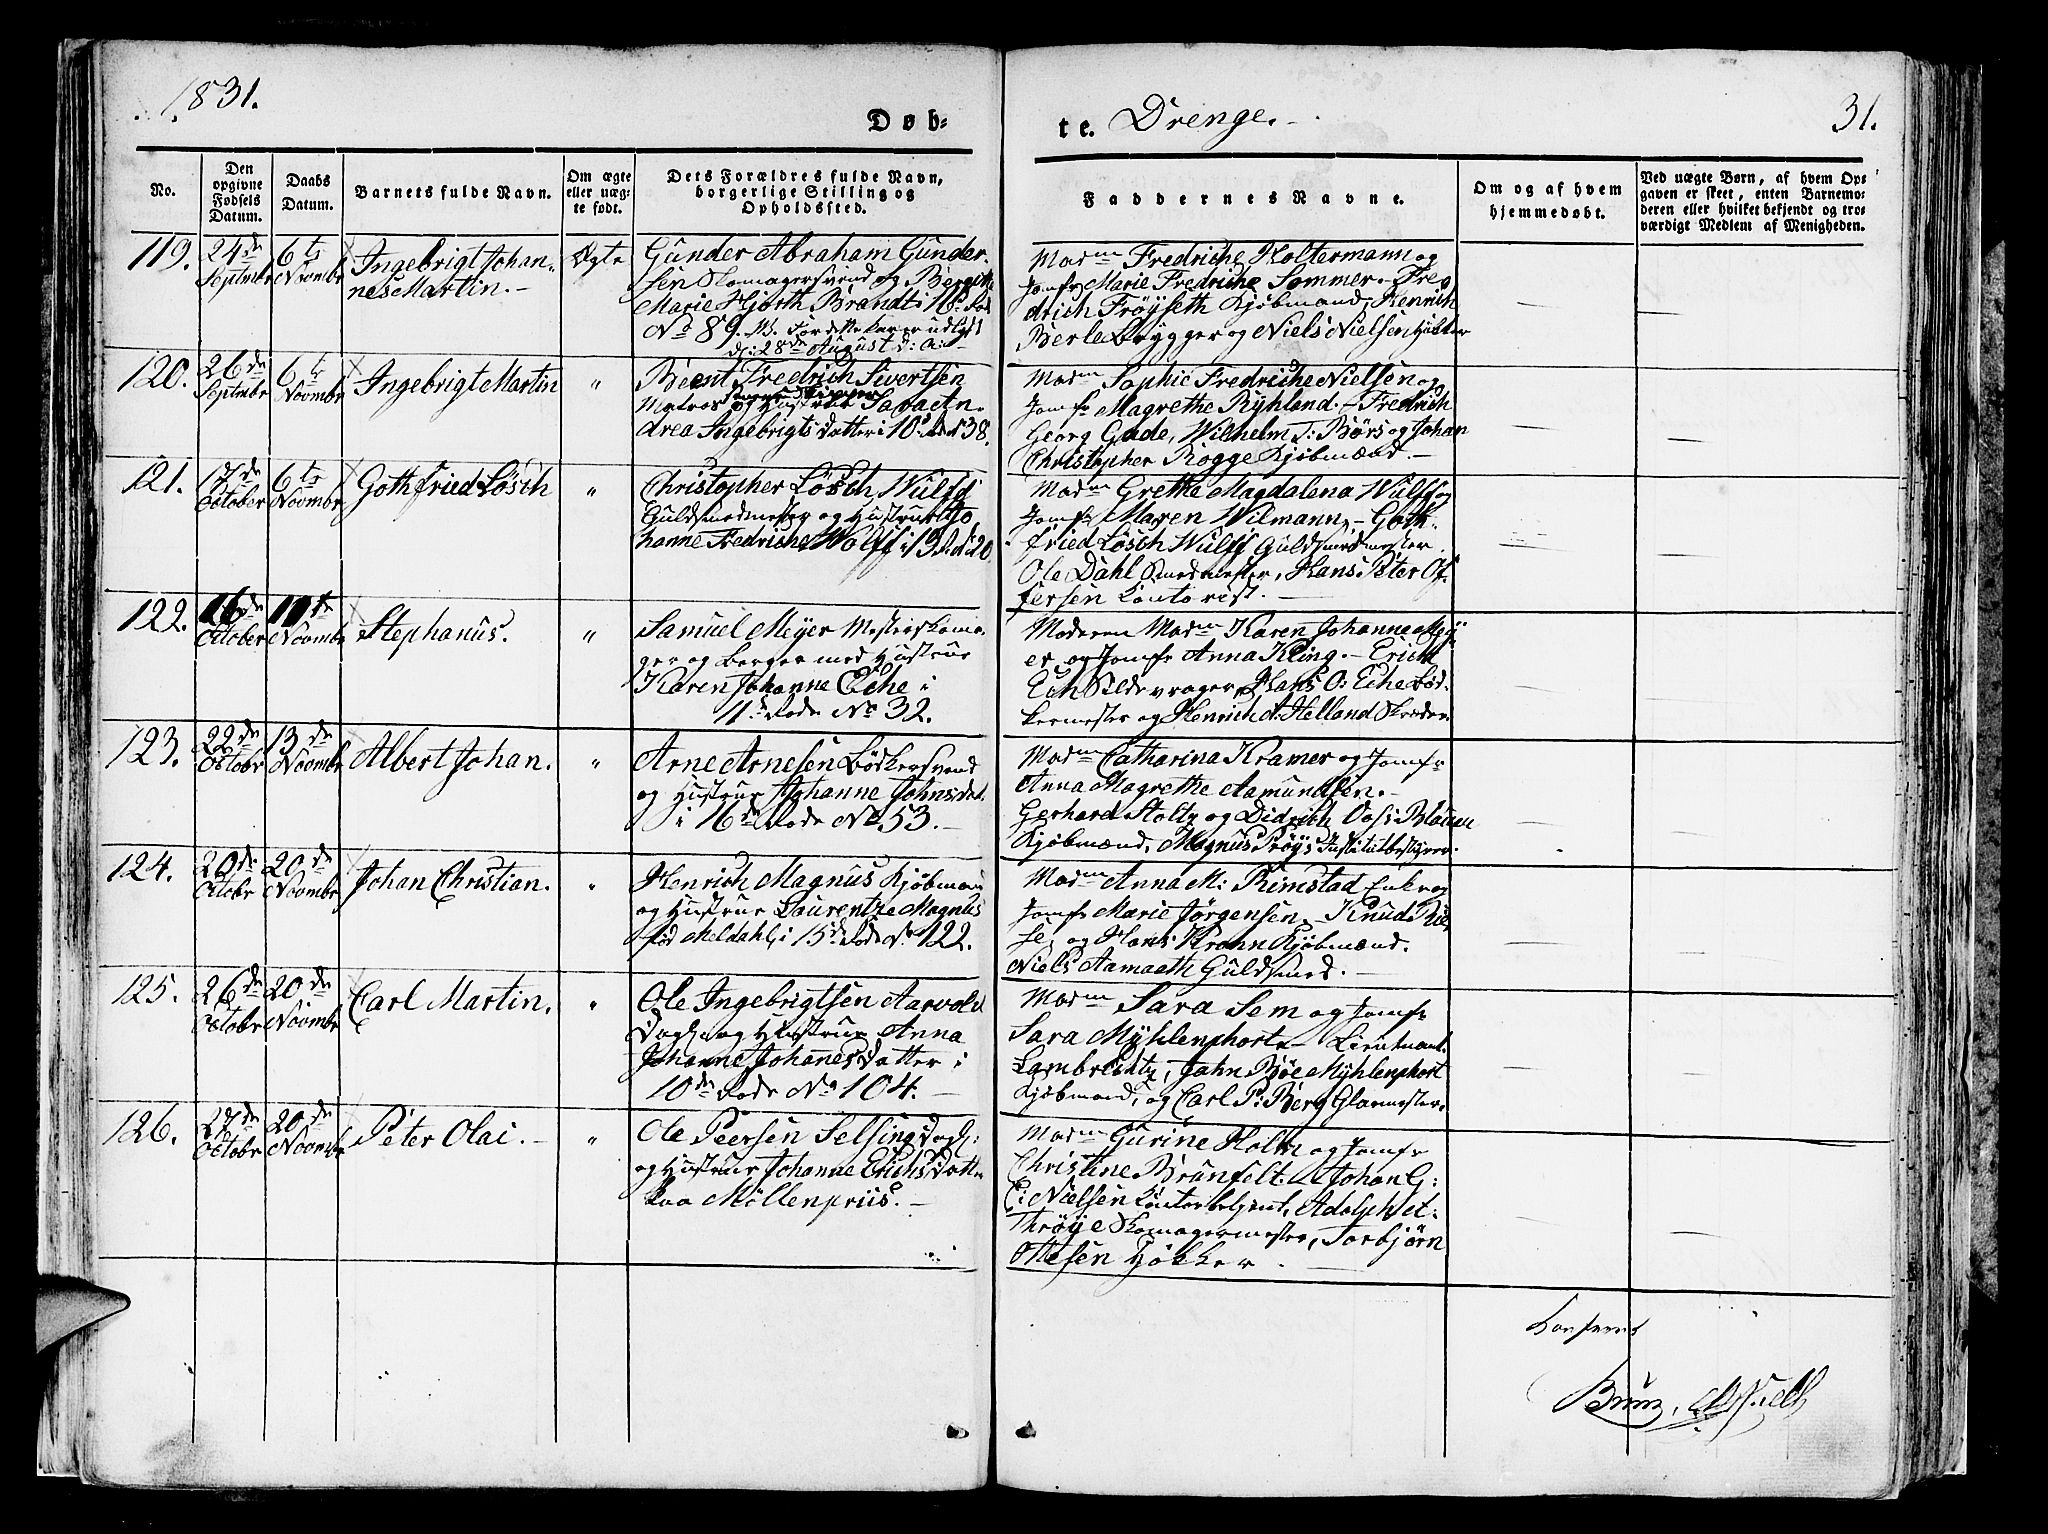 1831.
Døb-
te. Drenge.
31.
No.
Den opgivne Fødsels Datum.
Daabs Datum.
Barnets fulde Navn.
Om ægte eller uægte født.
Dets Forældres fulde Navn, borgerlige Stilling og Opholdssted.
Faddernes Navne.
Om og af hvem hjemmedøbt.
Ved uægte Børn, af hvem Opgaven er skeet, enten Barnemoderen eller hvilket bekjendt og troværdigt Medlem af Menigheden.
119.
24de Septmbr
6te Novmbr
Ingebrigt Johan-
nes Martin.
Ægte
Gunder Abraham Gunder-
sen Skomagersvend og Bergitte
Marie Hjorth Brandt i 16de Rode
No 89.
d: 28de August d: A:
Madm Fredriche Holtermann og
Jomfr Marie Fredriche Sommer. Fre
drich Frøyseth Kjøbmand, Henrich
Berle Brygger og Niels Nielsen Høkker
120.
26de Septmbr
6te Novmbr
Ingebrigt Martin
"
Beent Fredrich Sivertsen
Matros og Hustrue Sara An-
drea Ingebrigtsdatter i 10de Rode 138.
Madm Sophie Fredriche Nielsen og
Jomfr Magrethe Ryhland. Fredrich
Georg Gade, Wilhelm T: Børs og Johan
Christopher Rogge Kjøbmænd.
121.
17de October
6te Novmbr
Gothfried Løsch
"
Christopher Løsch Wulff
Guldsmedmester og Hustrue Jo
hanne Fredriche Wolff i 13 Rode 20
Madm Grethe Magdalena Wulff og
Jomfr Maren Wilmann. Goth-
fried Løsch Wulff Guldsmedmester
Ole Dahl Smedmester, Hans Peter Of-
fersen Contorist.
122.
16de October
Novmbr
Stephanus.
"
Samuel Meyer Mesterskoma-
ger og Borger med Hustrue
Karen Johanne Eche i
11te Rode No 32.
Moderen Madm Karen Johanne Mey
er og Jomfr Anna Kling. Erich
Ech Sildevrager, Hans O: Eche Bød-
kermester og Henrich A: Helland Skræder
123.
22de Octobr
13de Novmbr
Albert Johan.
"
Arne Arnesen Bødkersvend
og Hustrue Johanne Johnsdat.
i 16de Rode No 53.
Madm Catharina Kramer og Jomfr
Anna Magrethe Aamundsen.
Gerhard Stoltz og Didrich
Kjøbmænd, Magnus Prøys Institutbestyrer.
124.
20de Octobr
20de Novmbr
Johan Christian.
"
Henrich Magnus Kjøbmand
og Hustrue Laurentze Magnus
fød Meldahl i 15de Rode No 122.
Madm Anna M: Rimstad Enke og
Jomfr Marie Jørgensen. Knud Rie
se, og Hans Krohn Kjøbmænd.
Niels Aamaeth Guldsmed.
125.
26de Octobr
20de Novmbr
Carl Martin.
"
Ole Ingebrigtsen Aarvold
Dagl. og Hustrue Anna
Johanne Johanesdatter i
10de Rode No 104.
Madm Sara Sem og Jomfr
Sara Myhlenphort. Lieutnant
Lambrechtz, Jahn Bøe Myhlenphort
Kjøbmand, og Carl P: Berg Glarmester.
126.
27de Octobr
20de Novmbr
Peter Olai.
"
Ole Peersen Selsing Dagl:
og Hustrue Johanne Erichsdatter
paa Møllenpriis.
Madm Gurine Holm og Jomfr
Christine Brunfelt. Johan G:
C: Nielsen Contorbetjent, Adolph et:
Thrøye Skomagermester, Torbjørn
Ottesen Høkker.
Conferert
Bruun,